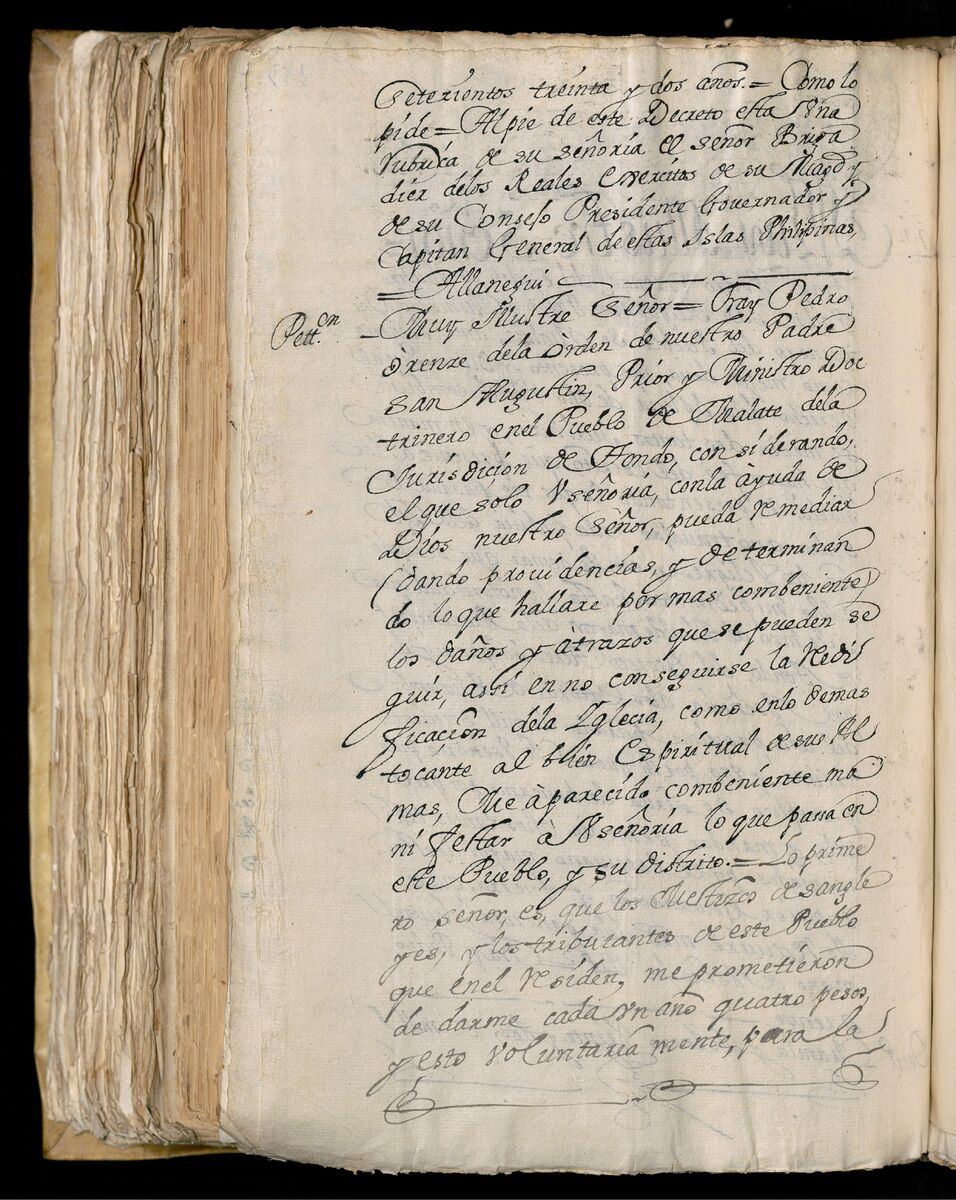 Setezientos treinta y dos años.= Como lo
pide= Al pie de este Decreto esta Vna
Rubrica de su señoria el señor Briga
dier delos Reales exercitos de su Magd y
de su Consejo Presidente Governador y
Capitan General de estas Islas Philipinas,
= Allanegui
Pett.on
Muy Illustre Señor= Fray Pedro
òrenze dela òrden de nuestro Padre
San Augustin, Prior y Ministro Doc
trinero enel Pueblo de Malate dela
Jurisdiçion de Tondo, con siderando,
el que solo Vseñoria, conla àyuda de
Dios nuestro Señor, pueda remediar
(dando prouidencias, y determinan
do lo que hallare por mas combeniente)
los daños y àtrazos que se pueden se
guir, assi en no conseguirse la Redi
ficacion dela Iglecia, como enlo demas
tocante al bien Espiritual de sus Al
mas, Me à parecido combeniente ma
nifestar à Vseñoria lo que passa en
este Pueblo, y su distrito.= Lo prime
ro señor, es, que los Mestizos de sangle
yes, y los tributantes de este Pueblo
que enel residen, me prometieron
de darme cada vn año quatro pesos,
y esto voluntaria mente, para la